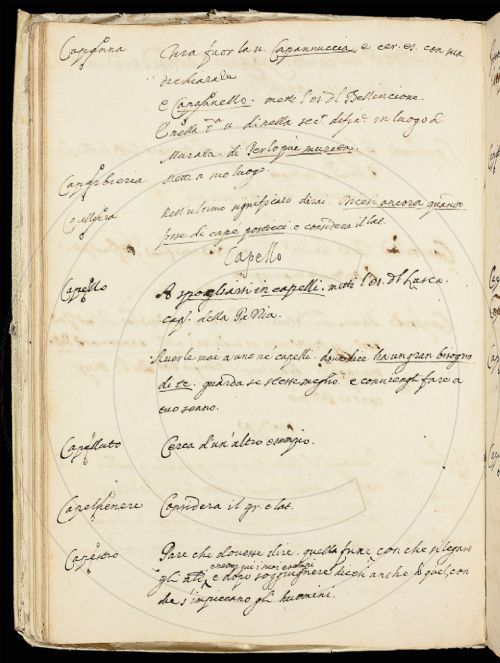 Capanna Tira fuor la v. Capannuccia, e cer. es. con sua
dichiaraz.
e Capannello. metti l'es. del Bellincione.
E nella v. di nella sec. difaz. in luogo di
Murata, di Per lo più murato.
Caparbieria Metti a suo luogo.
Nell'ultimo significato dirai. Dicesi ancora quando
fosse di capei posticci e considera il lat.
Capello
Capello A spogliarsi in capelli. metti l'es. del Lasca
cap. della Pazzia.
Averle mae a uno ne' capelli. dove dice ha un gran bisogno
di te. guarda se stesse meglio. e conviengli fare a
tuo senno.
Capellato Cerca d'un'altro esempio.
Capelvenere Considera il gr. e lat.
Capestro Pare che dovesse dire. quella fune, con che si legano
gli e dopo soggiugnere dicesi anche quel, con
che s'impiccano gli huomini.